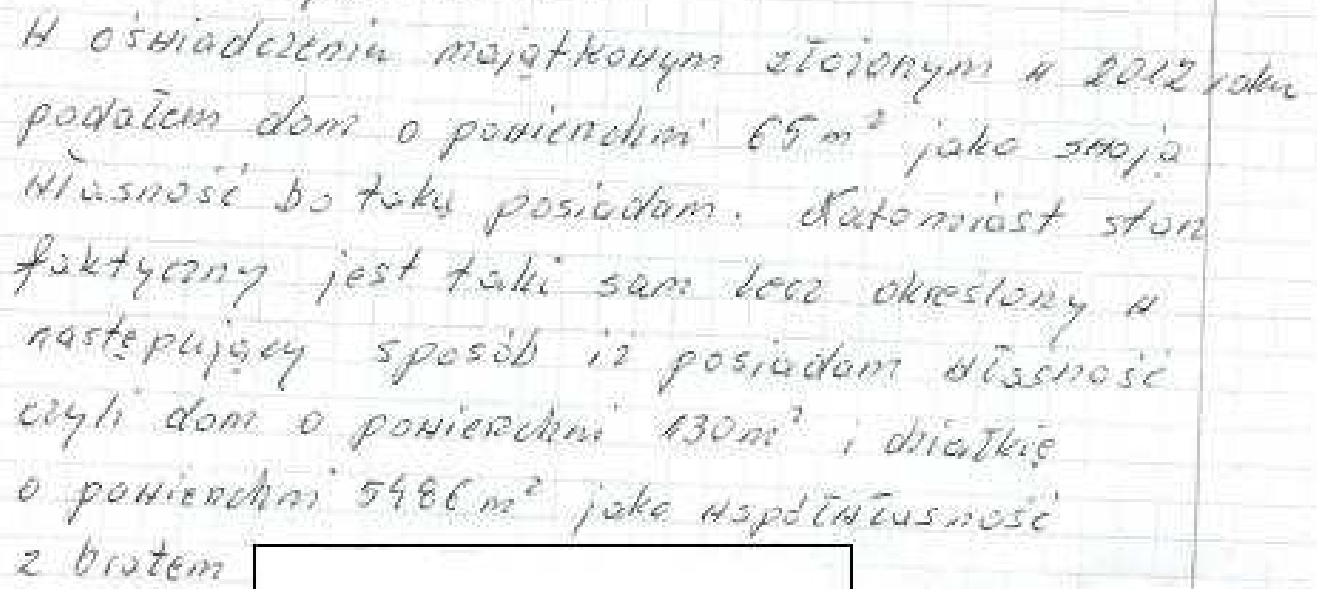 W oświadczeniu majątkowym złożonym w 2012 roku
podałem dom o powierzchni 65 m² jako swoją
własność bo taką posiadam. Natomiast stan
faktyczny jest taki sam lecz określony w
następujący sposób iż posiadam własność
czyli dom o powierzchni 130 m² i działkię
o powierzchni 5486 m² jako współwłasność
z bratem